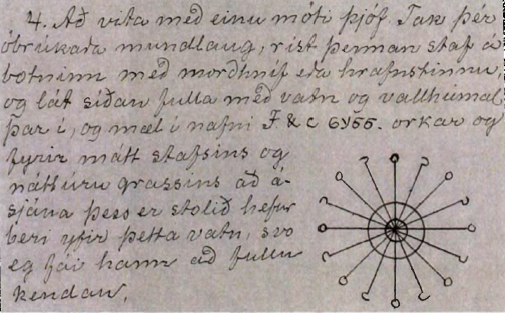 4. Að vita með einu móti þjóf. Tak þér
óbrúkaða mundlaug, ríst þennan staf á
botninn með morðhníf eða hrafntinnu,
og lát síðan fulla með vatn og vallhúmal
þar í, og mæl í nafni F & c 6y55. orkar og
fyrir mátt stafsins og
náttúru grassins að á-
sjána þess er stolið hefur
beri yfir þetta vatn, svo
eg fái hann að fullu
kendan.